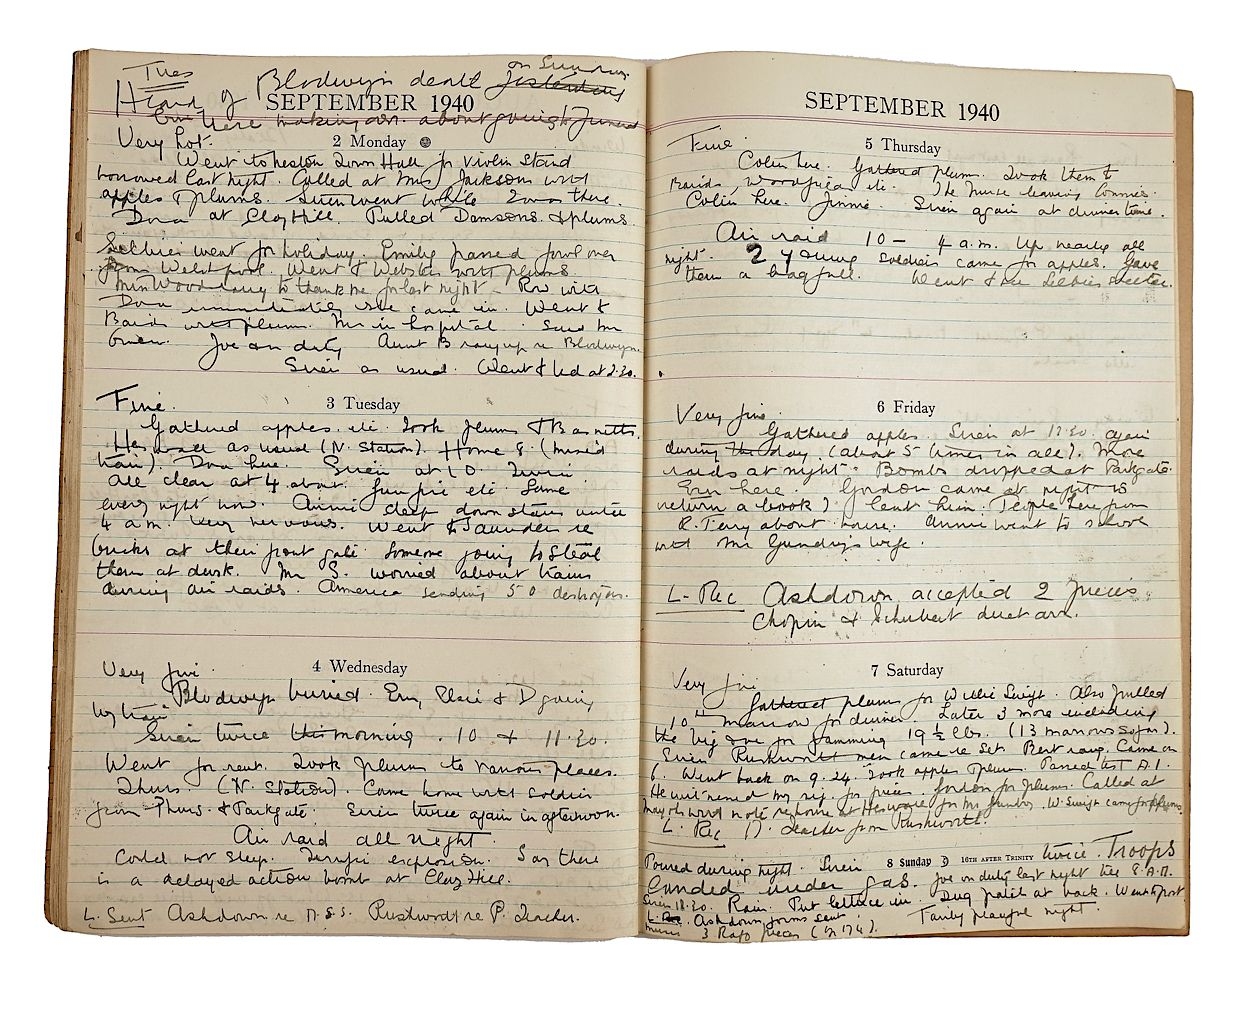 Tues
Heard of Blodwyn death on Sunday. yesterday
SEPTEMBER 1940
Ern here making arr. about going to funeral
Very hot. 2 Monday
Went to Neston Town Hall for Violin Stand
borrowed last night. Called at Mrs Jacksons with
apples & plums. Siren went while I was there.
Dora at Clay Hill. Pulled Damsons & plums.
Selbies went for holiday. Emily passed fowl over
from Welshpool. Went to Websters with plums.
Min Wood rang to thank me for last night. Row with
Dora immediately she came in. Went to
Bairds with plums. Mr in hospital. Said Mr
Joe on duty Aunt B rang up re Blodwyn.
Siren as usual. Went to bed at 2.30.
3 Tuesday
Fine.
Gathered apples etc. Took plums to Barnetts.
as usual (N. Station). Home 8. (missed
train). Dora here. Siren at 10. Twice
all clear at 4 about. Gun fire etc Same
every night now. Annie sleep down stairs until
4 a.m. Very nervous. Went to Saunders re
bricks at their front gate. Someone going to steal
them at dusk. Mr S. worried about trains
during air raids. America sending 50 destroyers.
4 Wednesday
Very fine.
Blodwyn buried. Ern, Elsie & D going
by train
Siren twice this morning. 10 & 11.30.
Went for rent. Took plums to various places.
Thurs (N. Station). Came home with soldier
from Thurs. to Parkgate. Siren twice again in afternoon.
Air raid all night.
Could not sleep. Terrific explosion. Say there
is a delayed action bomb at Clay Hill.
L. Sent Ashdown re M.S.S. Rushworth re P. Teacher.
SEPTEMBER 1940
5 Thursday
Fine
Colin here. Gathered plums. Took them to
Bairds, Woodfield etc. The nurse leaving
Colin here. Jennie. Siren again at dinner time.
Air raid 10 - 4 a.m. Up nearly all
night. 2 young soldiers came for apples. Gave
them a bag full. Went to the Selbies
6 Friday
Very fine.
Gathered apples. Siren at 12.30. again
during the day (about 5 times in all). More
raids at night. Bombs dropped at Parkgate.
Ern here. Gordon came at night to
return a book I lent him. People here from
R. Terry about house. Annie went to shore
with Mr Gundry's wife.
L. Rec Ashdown accepted 2 pieces
Chopin & Schubert duet arr.
7 Saturday
Very fine
Gathered plums for Willie Swift. Also pulled
10th marrow for dinner. Later 3 more including
the big one for jamming 19 ½ lbs. (13 marrows so far).
Siren Rushworth men came re set. Bert rang. Came on
6. Went back on 9.24. Took apples & plums. Passed test A.1.
He witnessed my sig for pieces. Gordon for plums. Called at
with note re house at Heswall for Mr Gundry. W. Swift came for plums.
L. Rec P. teacher from Rushworth.
8 Sunday 16TH AFTER TRINITY twice. Troops
Poured during night. Siren
landed under gas. Joe on duty last night till 8. A.M.
Siren 12.30. Rain. Put lettuce in. Dug patch at back. Went to post
L. Rec Ashdown forms sent. Fairly peaceful night.
music 3 Raff pieces (in 174).